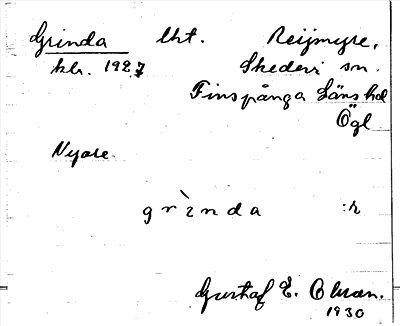 Grinda lht. Reijmyre,
klr. 1927 Skedevi sn.
Finspånga Läns hd
Ögl
Nyare.
grìnda :r
Gustaf E. Olsson.
1930